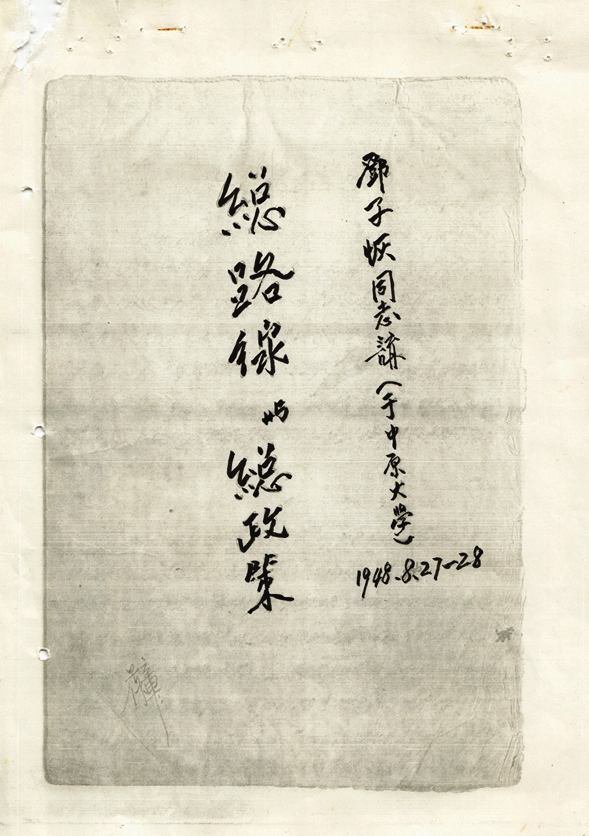 鄧子恢同志講（于中原大學）
1948.8.27-28
總路線与總政策